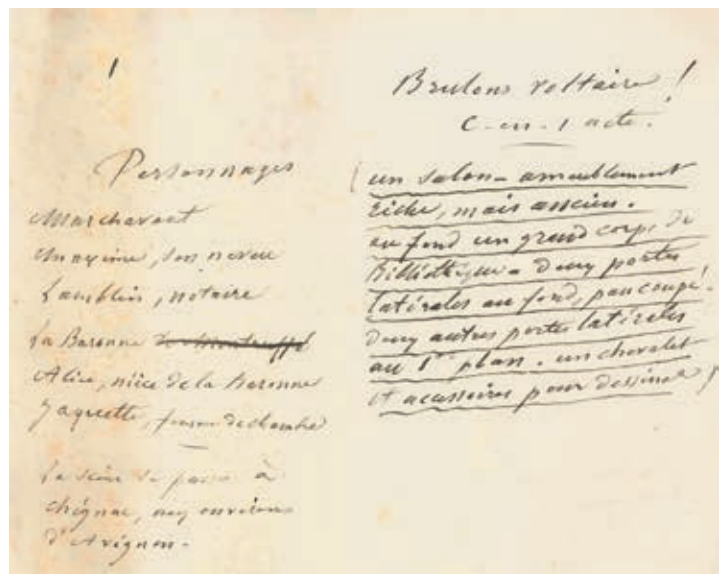 1
Personnages
Marchavant
Maxime, son neveu
Lamblin, notaire
La Baronne
Alice, nièce de la Baronne
Jaquette, femme de chambre
La scène se passe à
Chignac, aux environs
d'Avignon.
Brulons voltaire !
C-en-1 acte.
(un salon - ameublement
riche, mais ancien.
au fond un grand corps de
Bibliothèque - deux portes
latérales au fond, pan coupé.
deux autres portes latérales
au 1er plan. un chevalet
et accessoires pour dessiner)